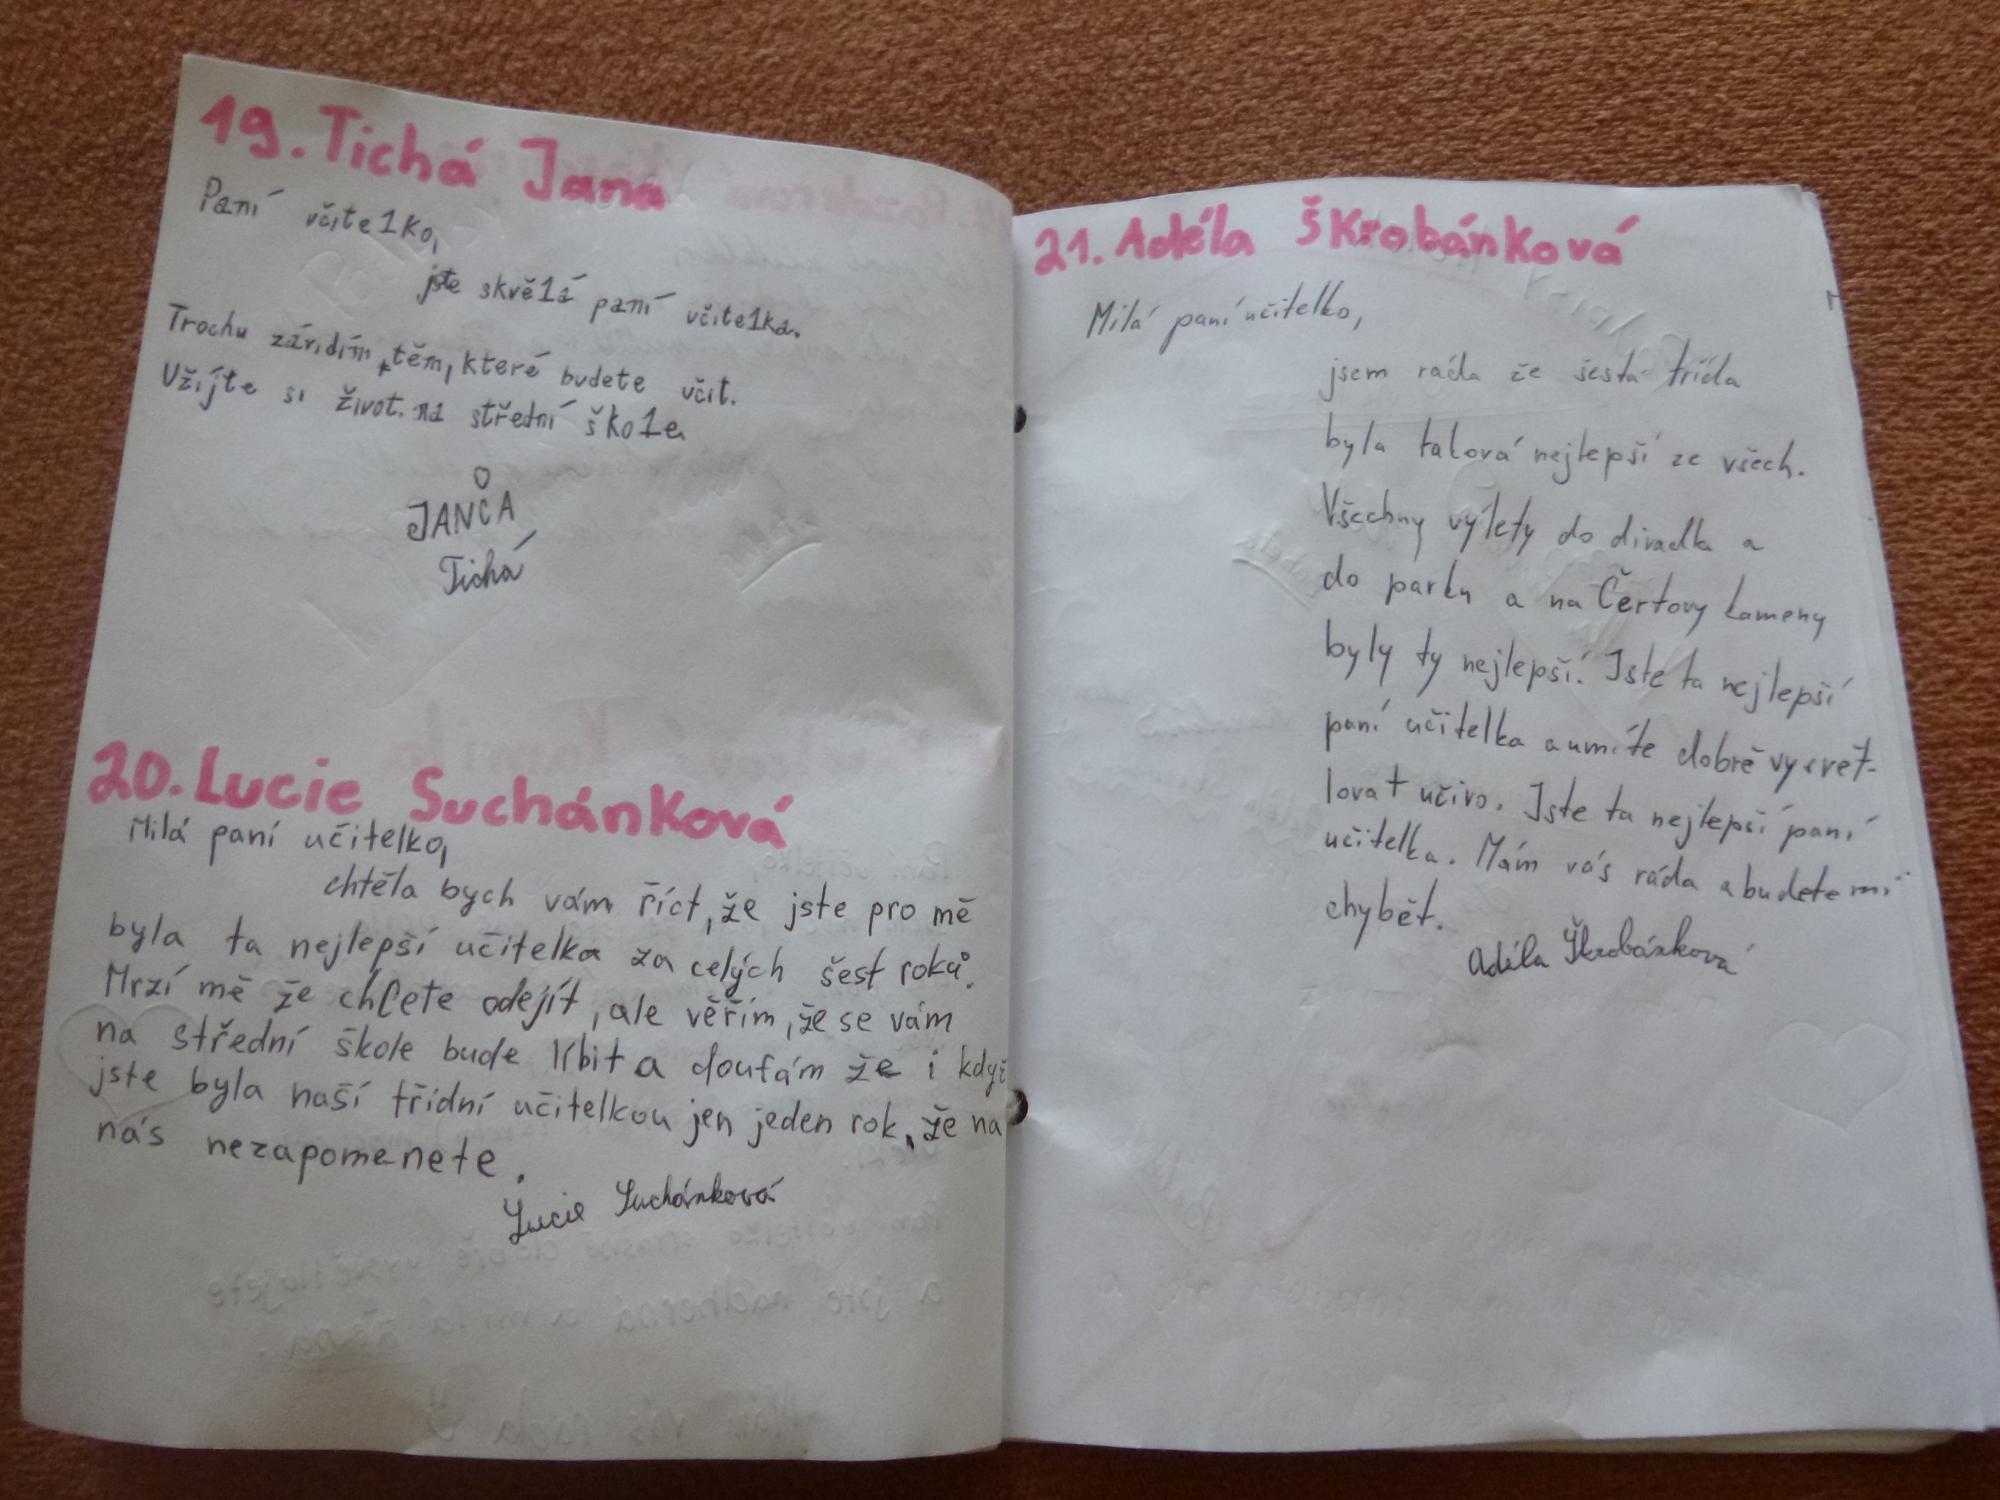 19. Tichá Jana
Paní učitelko,
jste skvělá paní učitelka.
Trochu závidím těm, které budete učit.
Užijte si život na střední škole.
JANČA
Tichá
20. Lucie Suchánková
Milá paní učitelko,
chtěla bych vám říct, že jste pro mě
byla ta nejlepší učitelka za celých šest roků.
Mrzí mě že chcete odejít, ale věřím, že se vám
na střední škole bude líbit a doufám že i když
jste byla naší třídní učitelkou jen jeden rok, že na
nás nezapomenete.
Lucie Suchánková
21. Adéla Škrobánková
Milá paní učitelko,
jsem ráda že šestá třída
byla taková nejlepší ze všech.
Všechny výlety do divadla a
do parku a na Čertovy kameny
byly ty nejlepší. Jste ta nejlepší
paní učitelka a umíte dobře vysvět-
lovat učivo. Jste ta nejlepší paní
učitelka. Mám vás ráda a budete mi
chybět.
Adéla Škrobánková